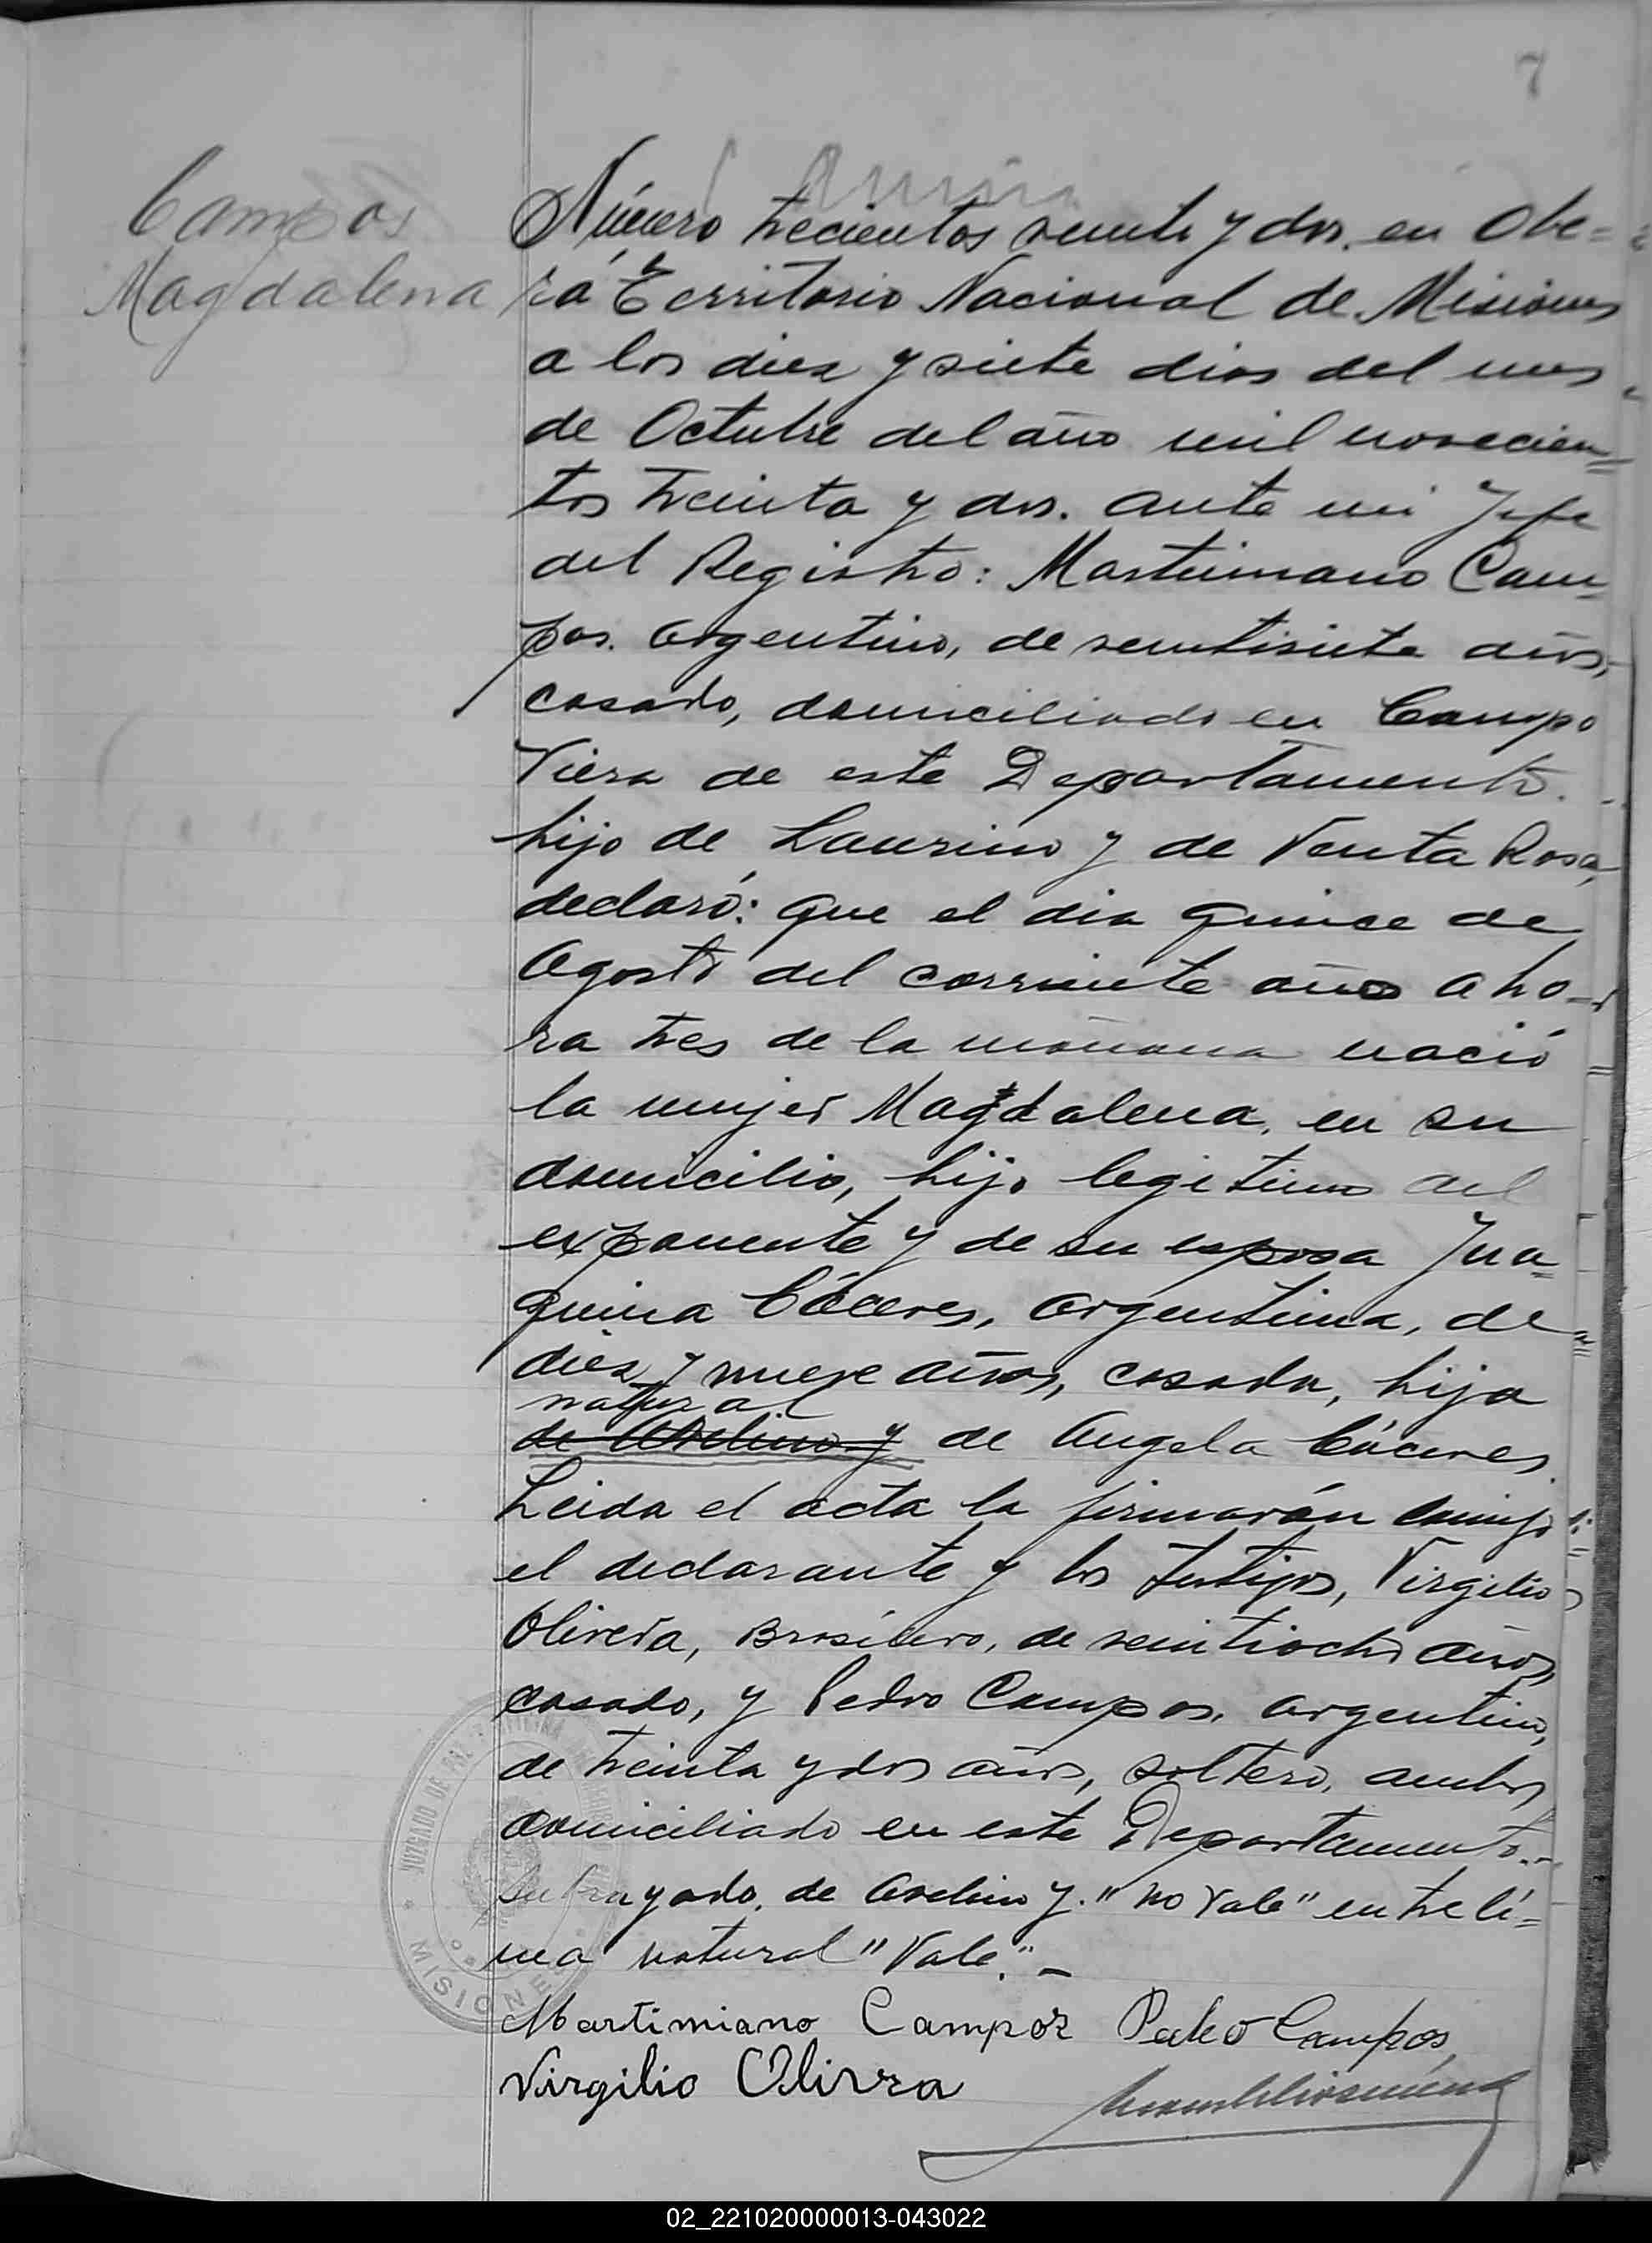 7
Campos
Magdalena
Número trecientos veinte y dos. en Obe=
rá Territorio Nacional de Misiones
a los diez y siete dias del mes
de Octubre del año mil novecien=
tos treinta y dos. ante mi Jefe
del Registro: Martimiano Cam=
pos. argentino, de veintisiete años,
casado, domiciliado en Campo
Viera de este Departamento.
hijo de Laurino y de Venta Rosa,
declaró: que el dia quince de
Agosto del corriente año a ho=
ra tres de la mañana nació
la mujer Magdalena, en su
domicilio, hijo legitimo del
exponente y de su esposa Jua=
quina Cáceres, argentina, de
diez y nueve años, casada, hija
natural
de Avelino y de Angela Cáceres
Leida el acta la firmarón conmigo
el declarante y los testigos, Virgilio
Olivera, Brasilero, de veintiocho años,
casado, y Pedro Campos, argentino,
de treinta y dos años, soltero, ambos
domiciliado en este Departamento.-
Subrayado. de Avelino y. "no vale" entre lí=
nea natural "Vale".-
JUZGADO DE PAZ
MISIONES
Martimiano Campoz Pedro Campos
Virgilio Olivra
02_221020000013-043022